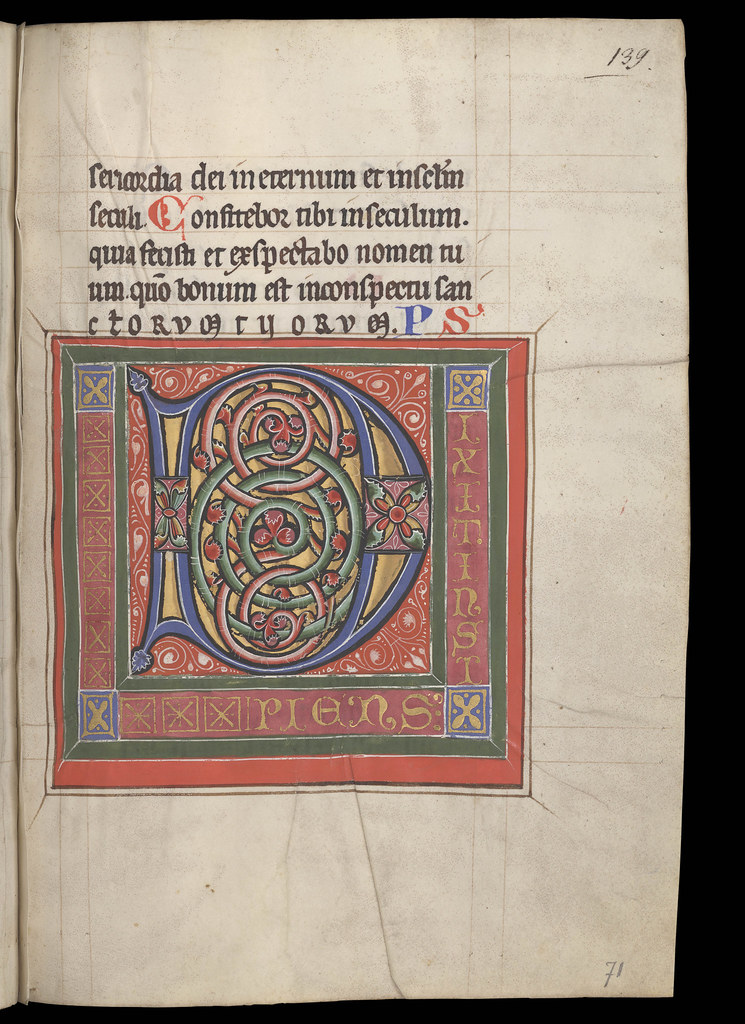 139.
sericordia dei in eternum et insclm̄
seculi. Confitebor tibi inseculum.
quia fecisti et exspectabo nomen tu
um. qūo bonum est inconspectu san
ctORVM TUORVM. PS
D
IXIT. INST
PIENS:
71